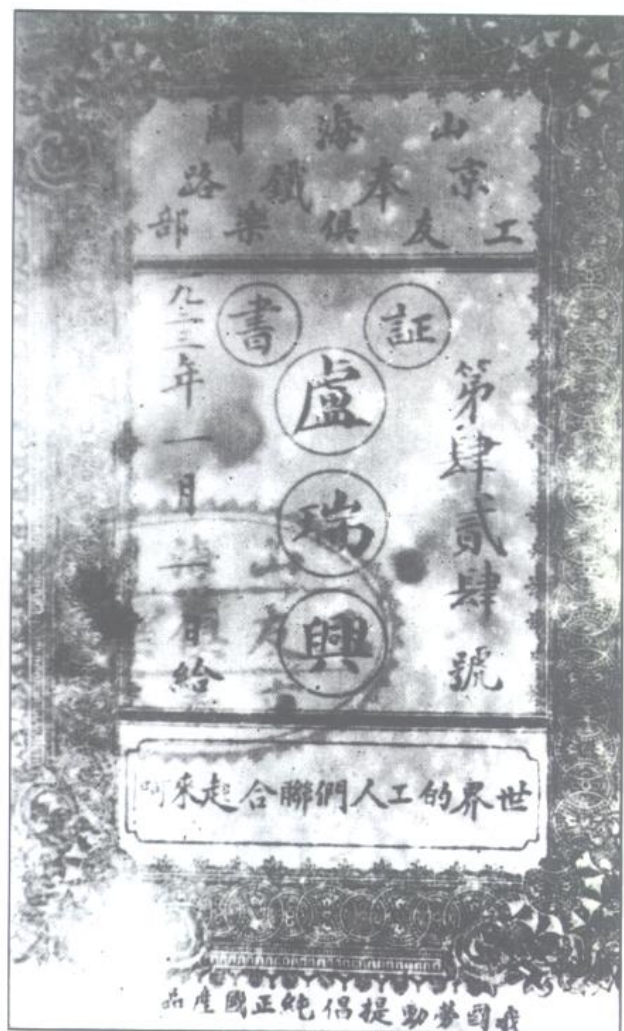 山海關
京奉鐵路
工友俱樂部
証書
第肆貳肆號
盧瑞興
一九二三年一月 日給
世界的工人們聯合起來呵
國勞動提倡純正國產品